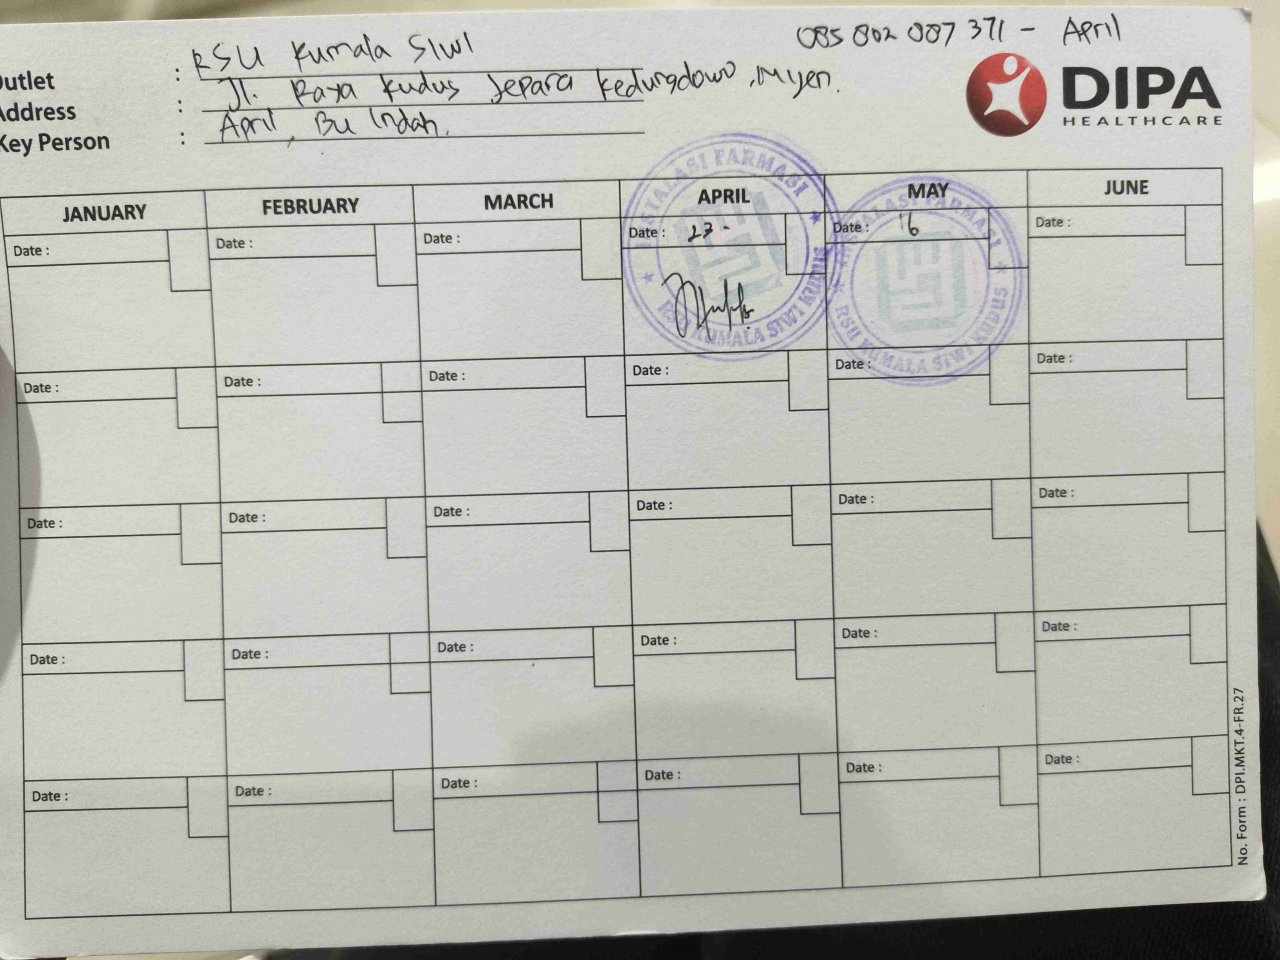 085 802 007 371 - April
Outlet : RSU Kumala Siwi
Address : Jl. Raya Kudus Jepara Kedungdowo, Mijen.
Key Person : April, Bu Indah.
DIPA
HEALTHCARE
JANUARY FEBRUARY MARCH APRIL MAY JUNE
Date : Date : Date : Date : 23 - Date : 16 Date :
INSTALASI FARMASI
RSU KUMALA SIWI KUDUS
INSTALASI FARMASI
RSU KUMALA SIWI KUDUS
Date : Date : Date : Date : Date : Date :
Date : Date : Date : Date : Date : Date :
Date : Date : Date : Date : Date : Date :
Date : Date : Date : Date : Date : Date :
No. Form : DPI.MKT.4-FR.27